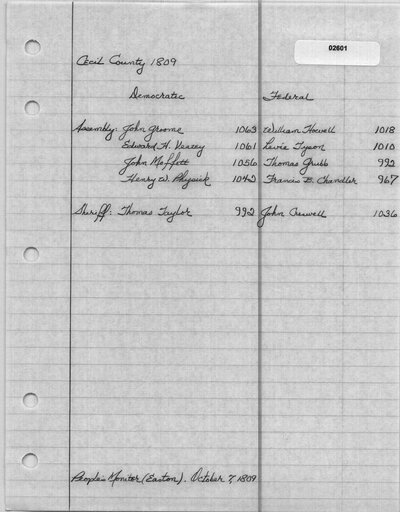 02601
Cecil County 1809
Democratic Federal
Assembly: John Groome 1063 William Howell 1018
Edward H. Veazey 1061 Levis Tyson 1010
John Moffett 1056 Thomas Grubb 992
Henry W. Physick 1042 Francis B. Chandler 967
Sheriff: Thomas Taylor 992 John Creswell 1036
People's Monitor (Easton). October 7, 1809